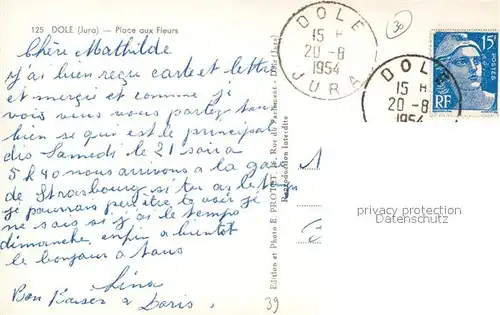 125 DOLE (Jura) — Place aux Fleurs
Chère Mathilde
j'ai bien reçu carte et lettre
et merçie et comme je
vois vous vous portez tous
bien se qui est le principal
dis Samedi le 21 soir a
5 h 40 nous arrivons a la gare
de Strasbourg si tu as le temps
je pourrais peu être te voir je
ne sais si j'ai le temps
dimanche enfin a bientot
le bonjour a tous
Lina
Bon Baiser a Doris.
Edition et Photo E. PROTET, Rue du Parlement - Dole (Jura)
Reproduction Interdite
39
DOLE
15 H
20-8
1954
JURA
30
DOLE
15 H
20-8
1954
15F
POSTES
RF
privacy protection
Datenschutz